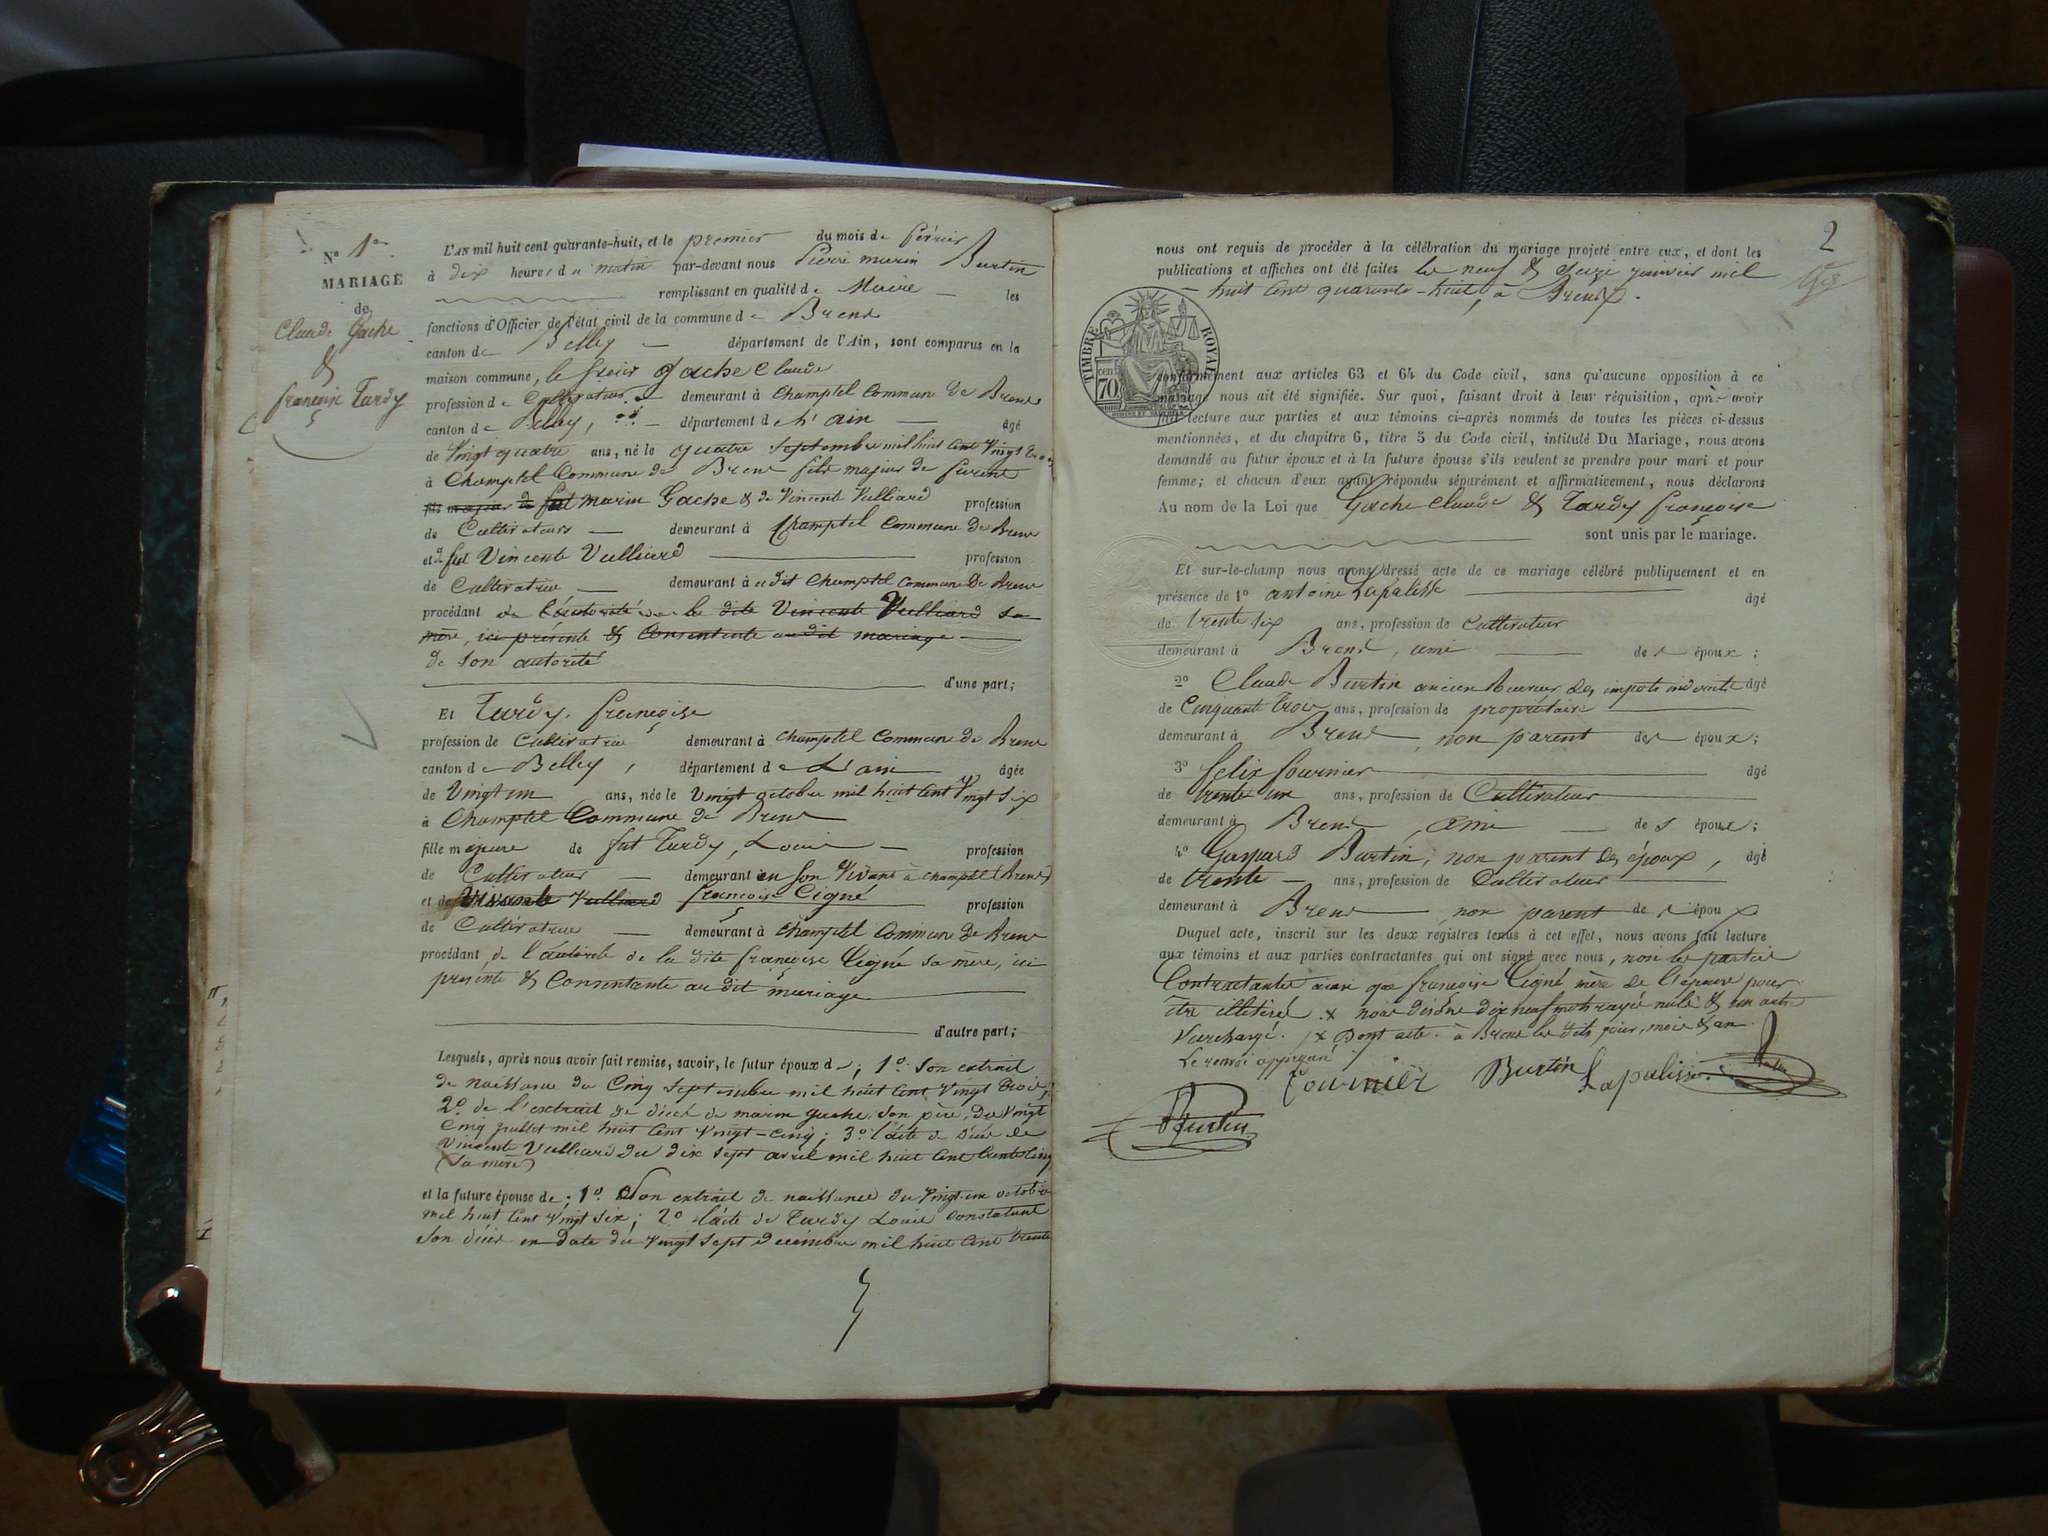 N° 1er
MARIAGE
de
Claude Gache
&
françoise Tardy
L'AN mil huit cent quarante-huit, et le premier du mois de février
à dix heures du matin par-devant nous Pierre marin Burtin
remplissant en qualité de Maire les
fonctions d'Officier de l'état civil de la commune de Brens
canton de Belley département de l'Ain, sont comparus en la
maison commune, le sieur Gache Claude
profession de Cultivateur demeurant à Champtel Commune de Brens
canton de Belley, département de L'ain âgé
de Vingt quatre ans, né le quatre septembre mil huit cent Vingt trois
à Champtel Commune de Brens fils majeur de furent
fils majeur de fut marin Gache & de Vincente Vulliard profession
de Cultivateurs demeurant à Champtel Commune de Brens
et d fut Vincente Vulliard profession
de Cultivatrice demeurant à dit Champtel commune De Brens
procédant de l'autorité de la dite Vincente Vulliard sa
mère, ici présente & Consentante au dit mariage
de son autorité
d'une part;
Et Tardy, françoise
profession de Cultivatrice demeurant à Champtel Commune de Brens
canton de Belley, département de L'ain âgée
de Vingt un ans, née le Vingt octobre mil huit cent Vingt six
à Champtel Commune de Brens
fille majeure de fut Tardy, Louis profession
de Cultivateur demeurant en son Vivant à champtel (Brens)
et de Vincente Vulliard françoise Cigné profession
de Cultivatrice demeurant à champtel commune De Brens
procédant de l'autorité de la dite françoise Cigné sa mère, ici
présente & Consentante au dit mariage
d'autre part;
Lesquels, après nous avoir fait remise, savoir, le futur époux de; 1°. Son extrait
de naissance du Cinq septembre mil huit Cent Vingt trois;
2° de l'extrait de décés de marin gache son père, du Vingt
Cinq juillet mil huit Cent Vingt-cinq; 3° l'acte de Décés de
Vincente Vulliard du dix sept avril mil huit Cent trente cinq
(Sa mère)
et la future épouse de; 1°. Son extrait de naissance du Vingt un octobre
mil huit Cent Vingt six; 2° l'acte de Tardy Louis Constatant
Son décés en date du Vingt sept décembre mil huit Cent trente
2
nous ont requis de procéder à la célébration du mariage projeté entre eux, et dont les
publications et affiches ont été faites les neuf & seize janvier mil
huit Cent quarante-huit, à Brens.
TIMBRE ROYAL
cen
70
conformément aux articles 63 et 64 du Code civil, sans qu'aucune opposition à ce
mariage nous ait été signifiée. Sur quoi, faisant droit à leur réquisition, après avoir
fait lecture aux parties et aux témoins ci-après nommés de toutes les pièces ci-dessus
mentionnées, et du chapitre 6, titre 5 du Code civil, intitulé Du Mariage, nous avons
demandé au futur époux et à la future épouse s'ils veulent se prendre pour mari et pour
femme; et chacun d'eux ayant répondu séparément et affirmativement, nous déclarons
Au nom de la Loi que Gache Claude & Tardy françoise
sont unis par le mariage.
Et sur-le-champ nous avons dressé acte de ce mariage célébré publiquement et en
présence de 1° antoine Lapalisse âgé
de trente six ans, profession de Cultivateur
demeurant à Brens, ami des époux;
2° Claude Burtin ancien Receveur des impots indirects âgé
de Cinquante trois ans, profession de propriétaire
demeurant à Brens, non parent des époux;
3° felix fournier âgé
de trente un ans, profession de Cultivateur
demeurant à Brens, ami des époux;
4° Gaspard Burtin, non parent des époux, âgé
de trente ans, profession de Cultivateur
demeurant à Brens, non parent des époux
Duquel acte, inscrit sur les deux registres tenus à cet effet, nous avons fait lecture
aux témoins et aux parties contractantes qui ont signé avec nous, non les parties
Contractantes ainsi que françoise Cigné mère de l'épouse pour
être illétéré. x nous disons dix neuf mots rayés nuls & un autre
surchargé. /x Dont acte. à Brens les dits jour, mois & an.
Le renvoi approuvé
fournier Burtin Lapalisse
Burtin